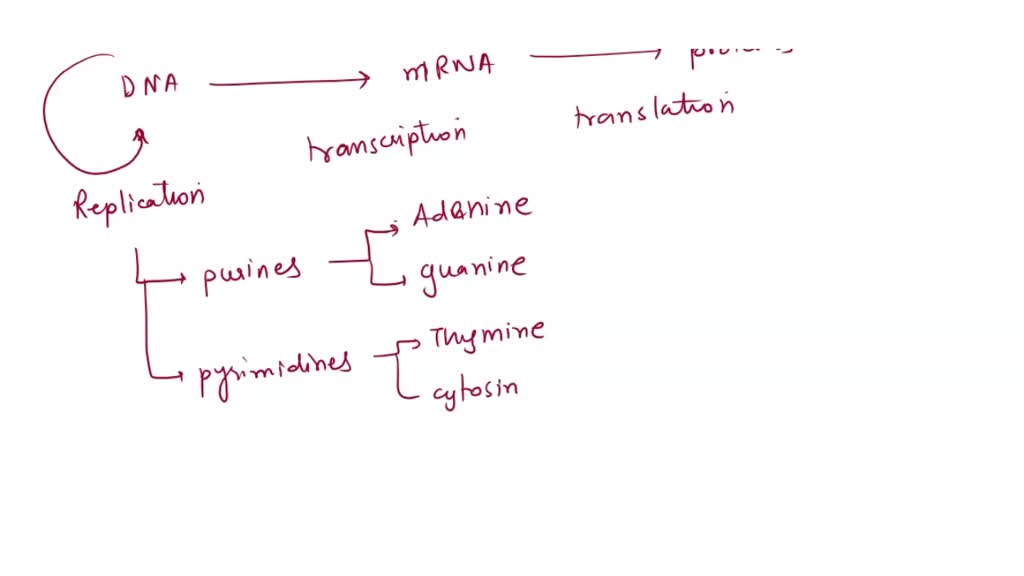 DNA mRNA
transcription translation
Replication
purines Adenine
guanine
pyrimidines Thymine
cytosin